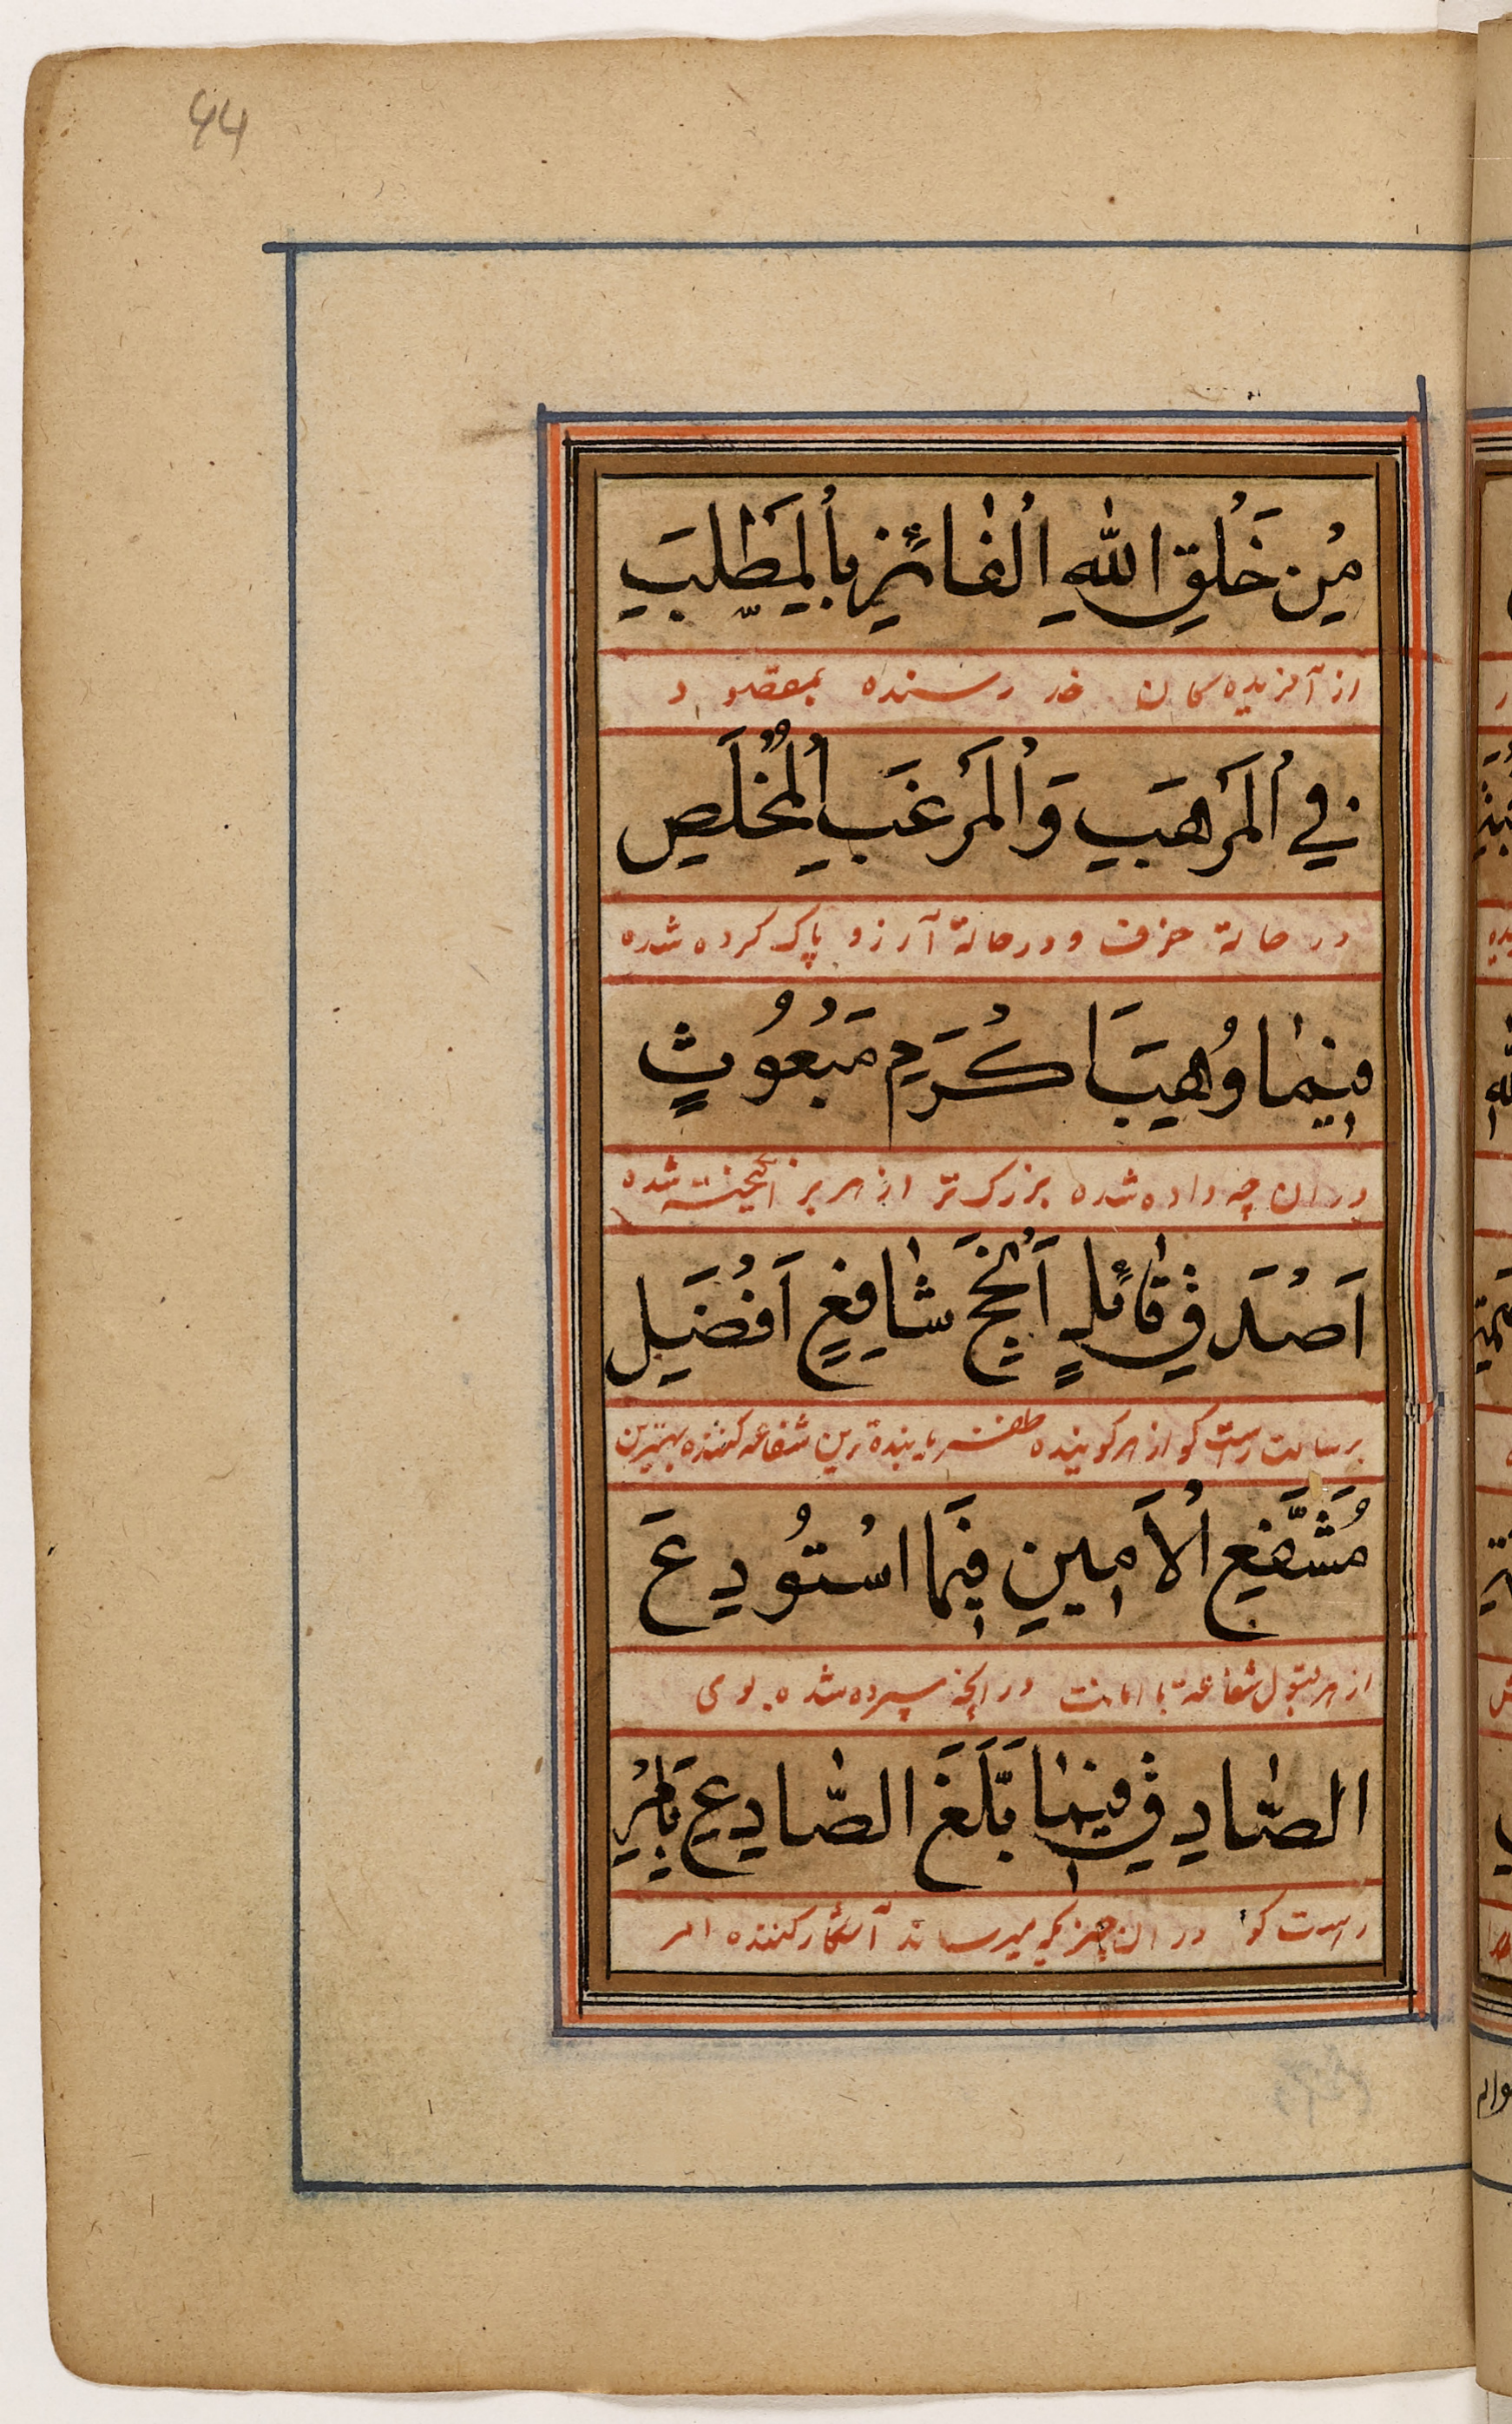 44
مِنْ خَلْقِ اللهِ الْفَائِزِ بِالْمَطْلَبِ
از آفریده کان خدا رسنده بمقصود
فِي الْمَرْهَبِ وَالْمَرْغَبِ الْمُخْلَصِ
در حالة خوف و در حالة آرزو پاک کرده شده
فِيمَا وُهِبَ اَكْرَمِ مَبْعُوثٍ
در ان چه داده شده بزرک تر از هر بر انکیخته شده
اَصْدَقِ قَائِلٍ اَنْجَحِ شَافِعٍ اَفْضَلِ
برسالت راست کو از هر کوینده ظفر یابنده ترین شفاعه کننده بهترین
مُشَفَّعٍ الْاَمِينِ فِيمَا اسْتُودِعَ
از هر قبول شفاعة با امانت در آنچه سپرده شده بوی
الصَّادِقِ فِيمَا بَلَّغَ الصَّادِعِ بِاَمْرِ
راست کو در ان چیز که میرساند آشکار کننده امر